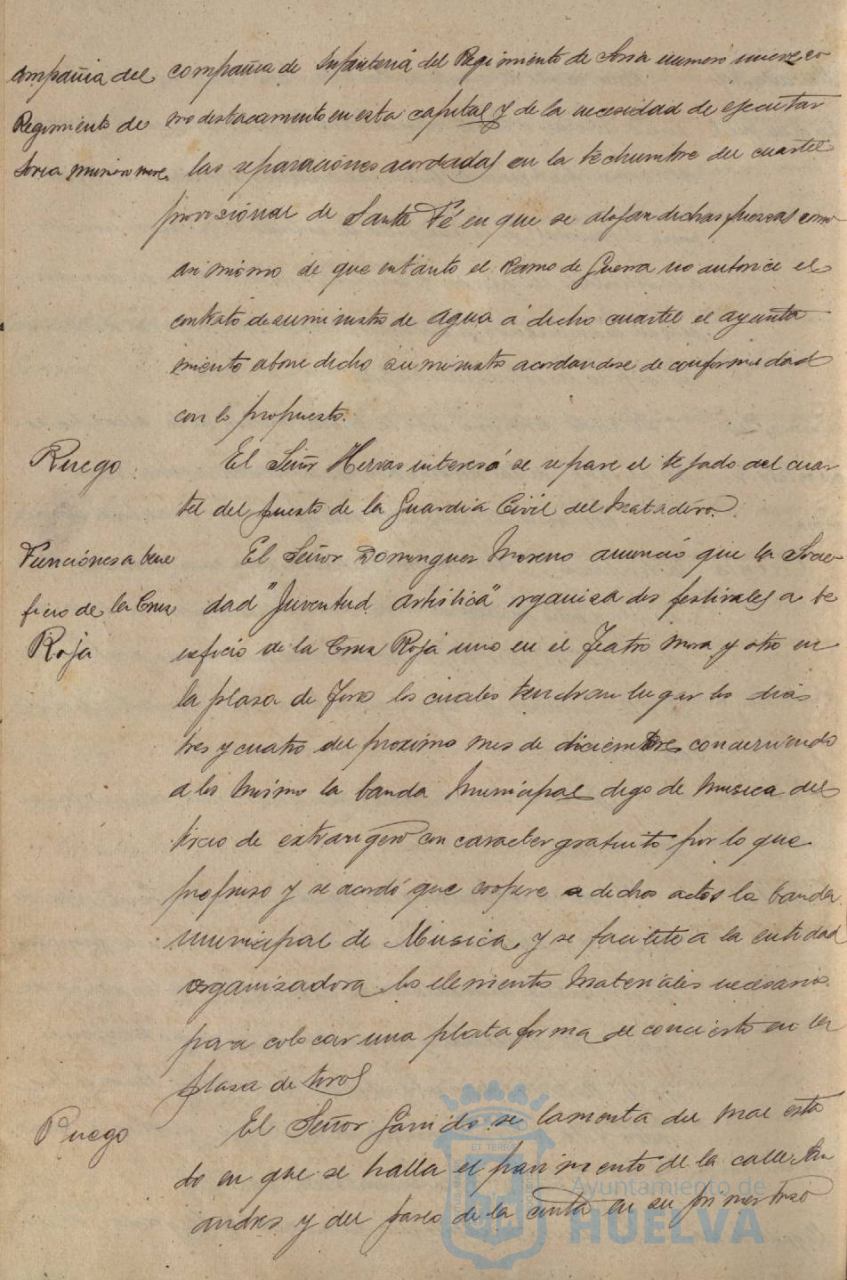 ompañia del
Regimiento de
Soria número nueve
compañia de Infanteria del Regimiento de Soria número nueve co
mo destacamento en esta capital y de la necesidad de ejecutar
las reparaciones acordadas en la techumbre del cuartel
provisional de Santa Fé en que se alojan dichas fuerzas como
asi mismo de que entanto el Ramo de Guerra no autorice el
contrato de suministro de agua á dicho cuartel el ayunta
miento abone dicho suministro acordandose de conformidad
con lo propuesto.
Ruego
El Señor Hervas interesó se repare el tejado del cuar
tel del puesto de la Guardia Civil del Matadero.
Funciones a bene
ficio de la Cruz
Roja
El Señor Dominguez Moreno anunció que la Socie
dad "Juventud Artistica" organiza dos festivales a be
neficio de la Cruz Roja uno en el Teatro Mora y otro en
la plaza de Toros los cuales tendran lugar los dias
tres y cuatro del proximo mes de diciembre concurriendo
a los mismo la banda Municipal digo de Musica del
tercio de extrangero con caracter gratuito por lo que
propuso y se acordó que coopere a dichos actos la banda
Municipal de Musica, y se facilite a la entidad
organizadora los elementos materiales necesarios
para colocar una plataforma de concierto en la
plaza de toros
Ruego
El Señor Garrido se lamenta del mal esta
do en que se halla el pavimento de la calle
andres y del paseo de la cinta en su primer trozo
Ayuntamiento de
HUELVA